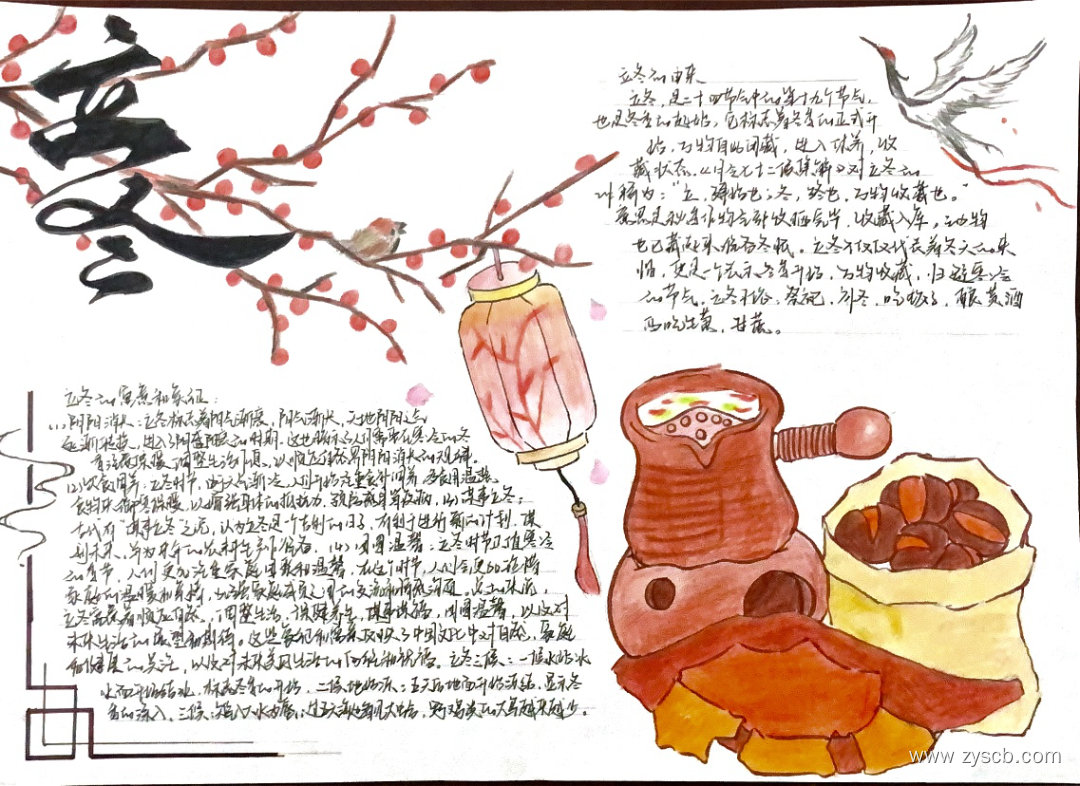 立冬
立冬的由来
立冬,是二十四节气中的第十九个节气,
也是冬季的起始,它标志着冬季的正式开
始,万物自此闭藏,进入休养,收
藏状态。《月令七十二候集解》对立冬的
称为:“立,建始也;冬,终也,万物收藏也。”
意思是秋季作物全部收晒完毕,收藏入库,动物
也已藏起来准备冬眠。立冬不仅仅代表着冬天的来
临,更是一个表示冬季开始,万物收藏,归避寒冷
的节气。立冬习俗:祭祀,补冬,吃饺子,酿黄酒
吃生菜,甘蔗。
立冬的寓意和象征:
(1)阴阳消长:立冬标志着阳气渐衰,阴气渐长,天地阴阳之气
进入了阴盛阳衰的时期,这也暗示人们需要在寒冷的冬
季注意保暖,调整生活习惯,以顺应自然界阴阳消长的规律。
(2)饮食调节:立冬时节,由于天气渐冷,人们开始注重食补调养,多食用温热
食物来御寒保暖,以增强身体的抵抗力,预防疾病(3)谋事立冬:
古代有“谋事立冬”之说,认为立冬是一个吉利的日子,有利于进行新的计划,谋
划未来,并为来年的农耕生产作准备。(4)团圆温馨:立冬时节正值寒冷
的季节,人们更加注重家庭团聚和温馨,在这个时节,人们会更加珍惜
家庭的温暖和亲情,加强家庭成员之间的交流和情感沟通。总的来说,
立冬寓意着顺应自然,调整生活,保暖养生,谋事谋略,团圆温馨,以及对
未来生活的展望和期待,这些象征和寓意反映了中国文化中对自然,家庭
和健康的关注,以及对未来美好生活的向往和祝福。立冬三候:一候水始冰
水面开始结冰,标志冬季的开始,二候地始冻:五天后地面开始冻结,显示冬
季的深入,三候:雉入大水为蜃:过五天
www.zyscb.com